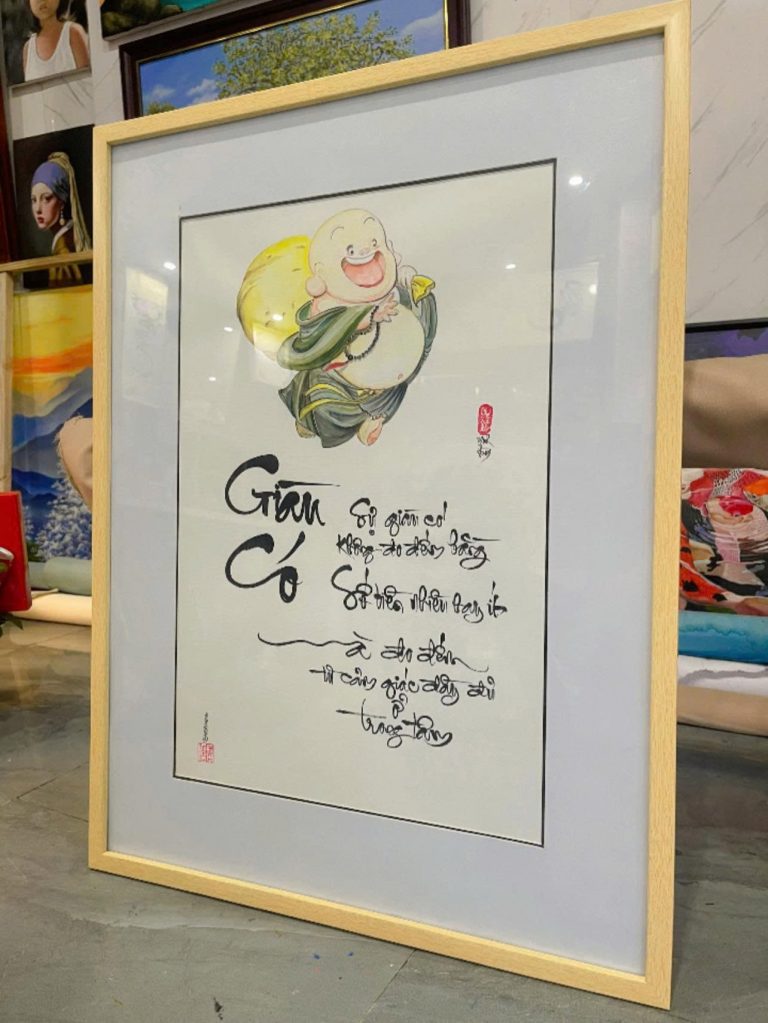 Giàu
Có
Sự giàu có
không đo đếm bằng
Số tiền nhiều hay ít
Mà đo đếm
từ cảm giác đầy đủ
ở
trong tâm